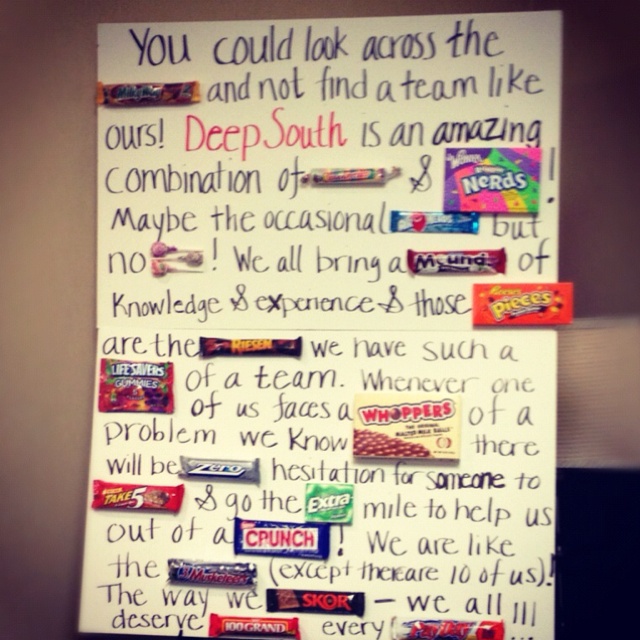 You could look across the
Milky Way and not find a team like
ours! Deep South is an amazing
combination of & Wonka NERDS !
Maybe the occasional but
no ! We all bring a Mounds of
Knowledge & experience & those pieces
are the RIESEN we have such a
LIFE SAVERS GUMMIES of a team. Whenever one
of us faces a WHOPPERS of a
problem we know there
will be ZERO hesitation for someone to
TAKE 5 & go the Extra mile to help us
out of a CRUNCH ! We are like
the 3 Musketeers (except there are 10 of us)!
The way we SKOR - we all
deserve 100 GRAND every